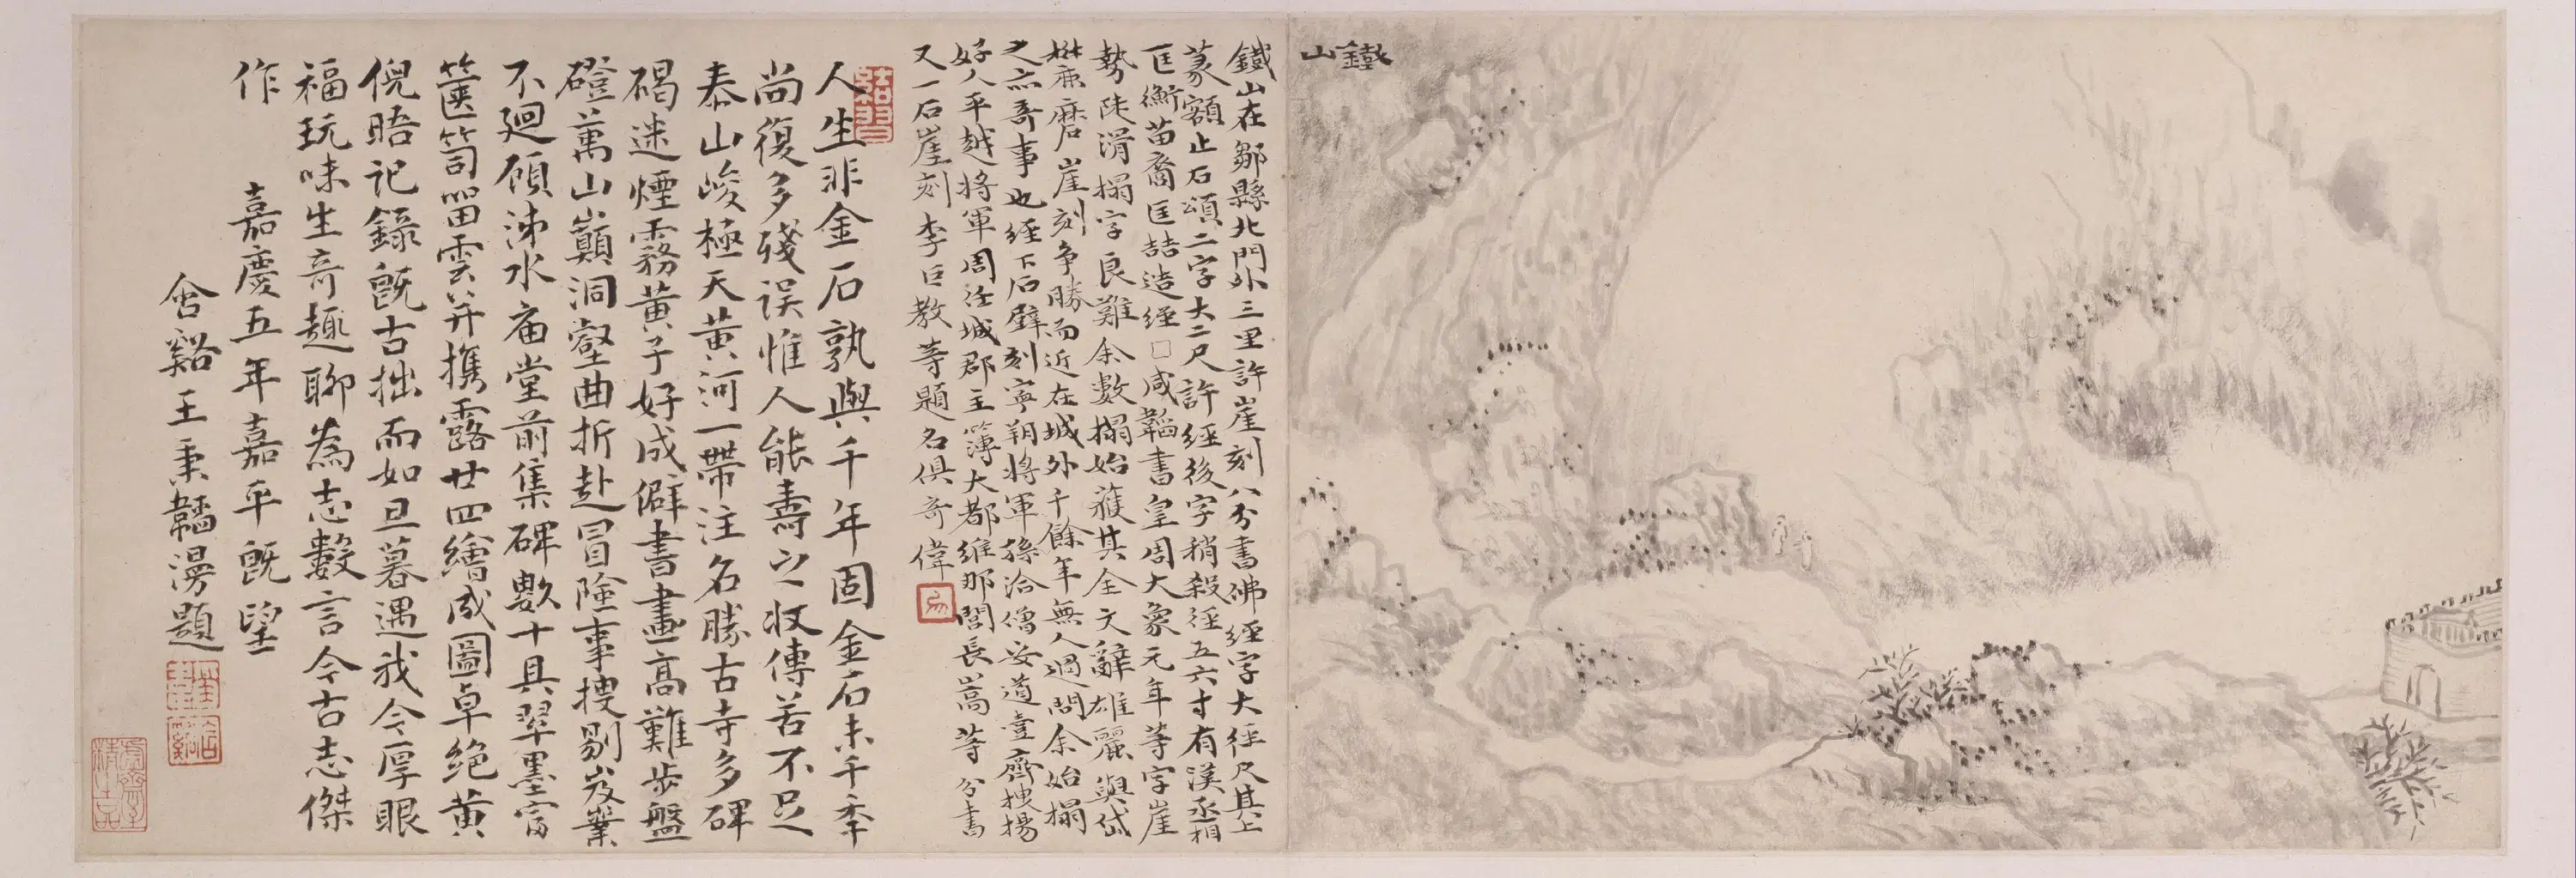 鐵山
鐵山在鄒縣北門外三里許崖刻八分書佛經字大徑尺其上
篆額止石頌二字大二尺許經後字稍殺徑五六寸有漢丞相
匡衡苗裔匡喆造經□咸韜書皇周大象元年等字崖
勢陡滑搨字良難余數搨始獲其全文辭雄麗與岱
麓磨崖刻爭勝而近在城外千餘年無人過問余始搨
之亦奇事也經下石壁刻寧朔將軍孫洽僧安道壹齊搜揚
好人平越將軍周任城郡主簿大都維那閭長嵩等分書
又一石崖刻李巨敖等題名俱奇偉
人生非金石孰與千年固金石未千季
尚復多殘誤惟人能壽之收傳苦不足
泰山峻極天黃河一帶注名勝古寺多碑
碣迷煙霧黃子好成僻書畫高難步盤
磴萬山巔洞壑曲折赴冒險事搜剔岌業
不廻顧泲水庙堂前集碑數十具翠墨富
篋笥畱雲并攜露廿四繪成圖卓絕黃
倪晤記錄旣古拙而如旦暮遇我今厚眼
福玩味生奇趣聊為志數言今古志傑
作
嘉慶五年嘉平旣望
畬谿王秉韜漫題